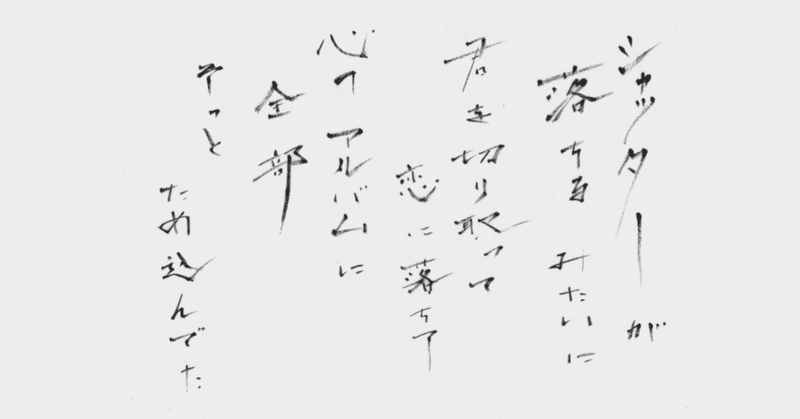 シャッターが
落ちる みたいに
君を切り取って
恋に落ちて
心のアルバムに
全部
そっと
ため込んでた